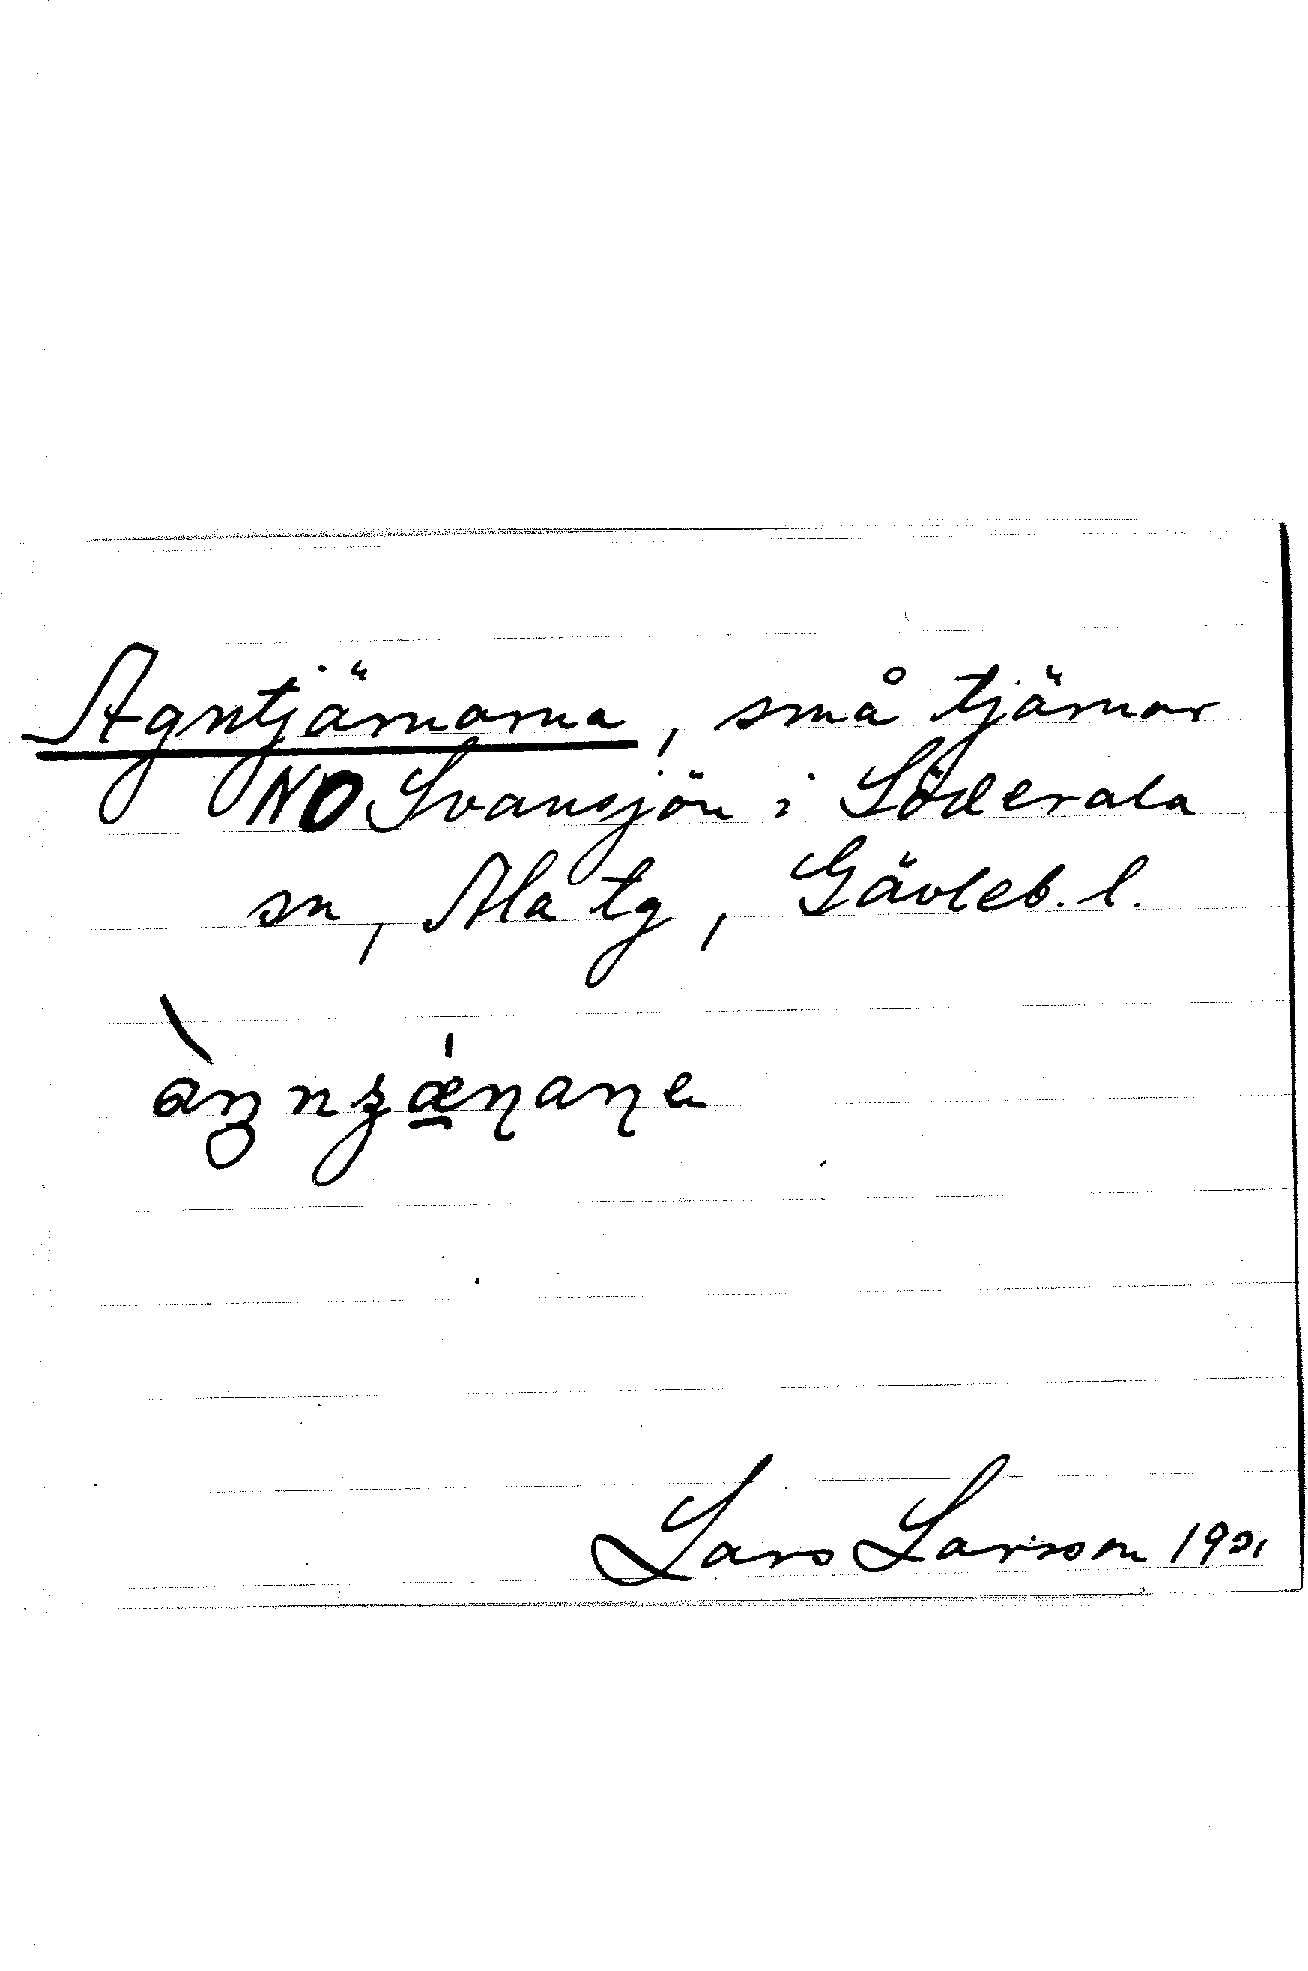 Agntjärnarna, små tjärnar
NO Svansjön i Söderala
sn, Ala tg, Gävleb. l.
Lars Larsson